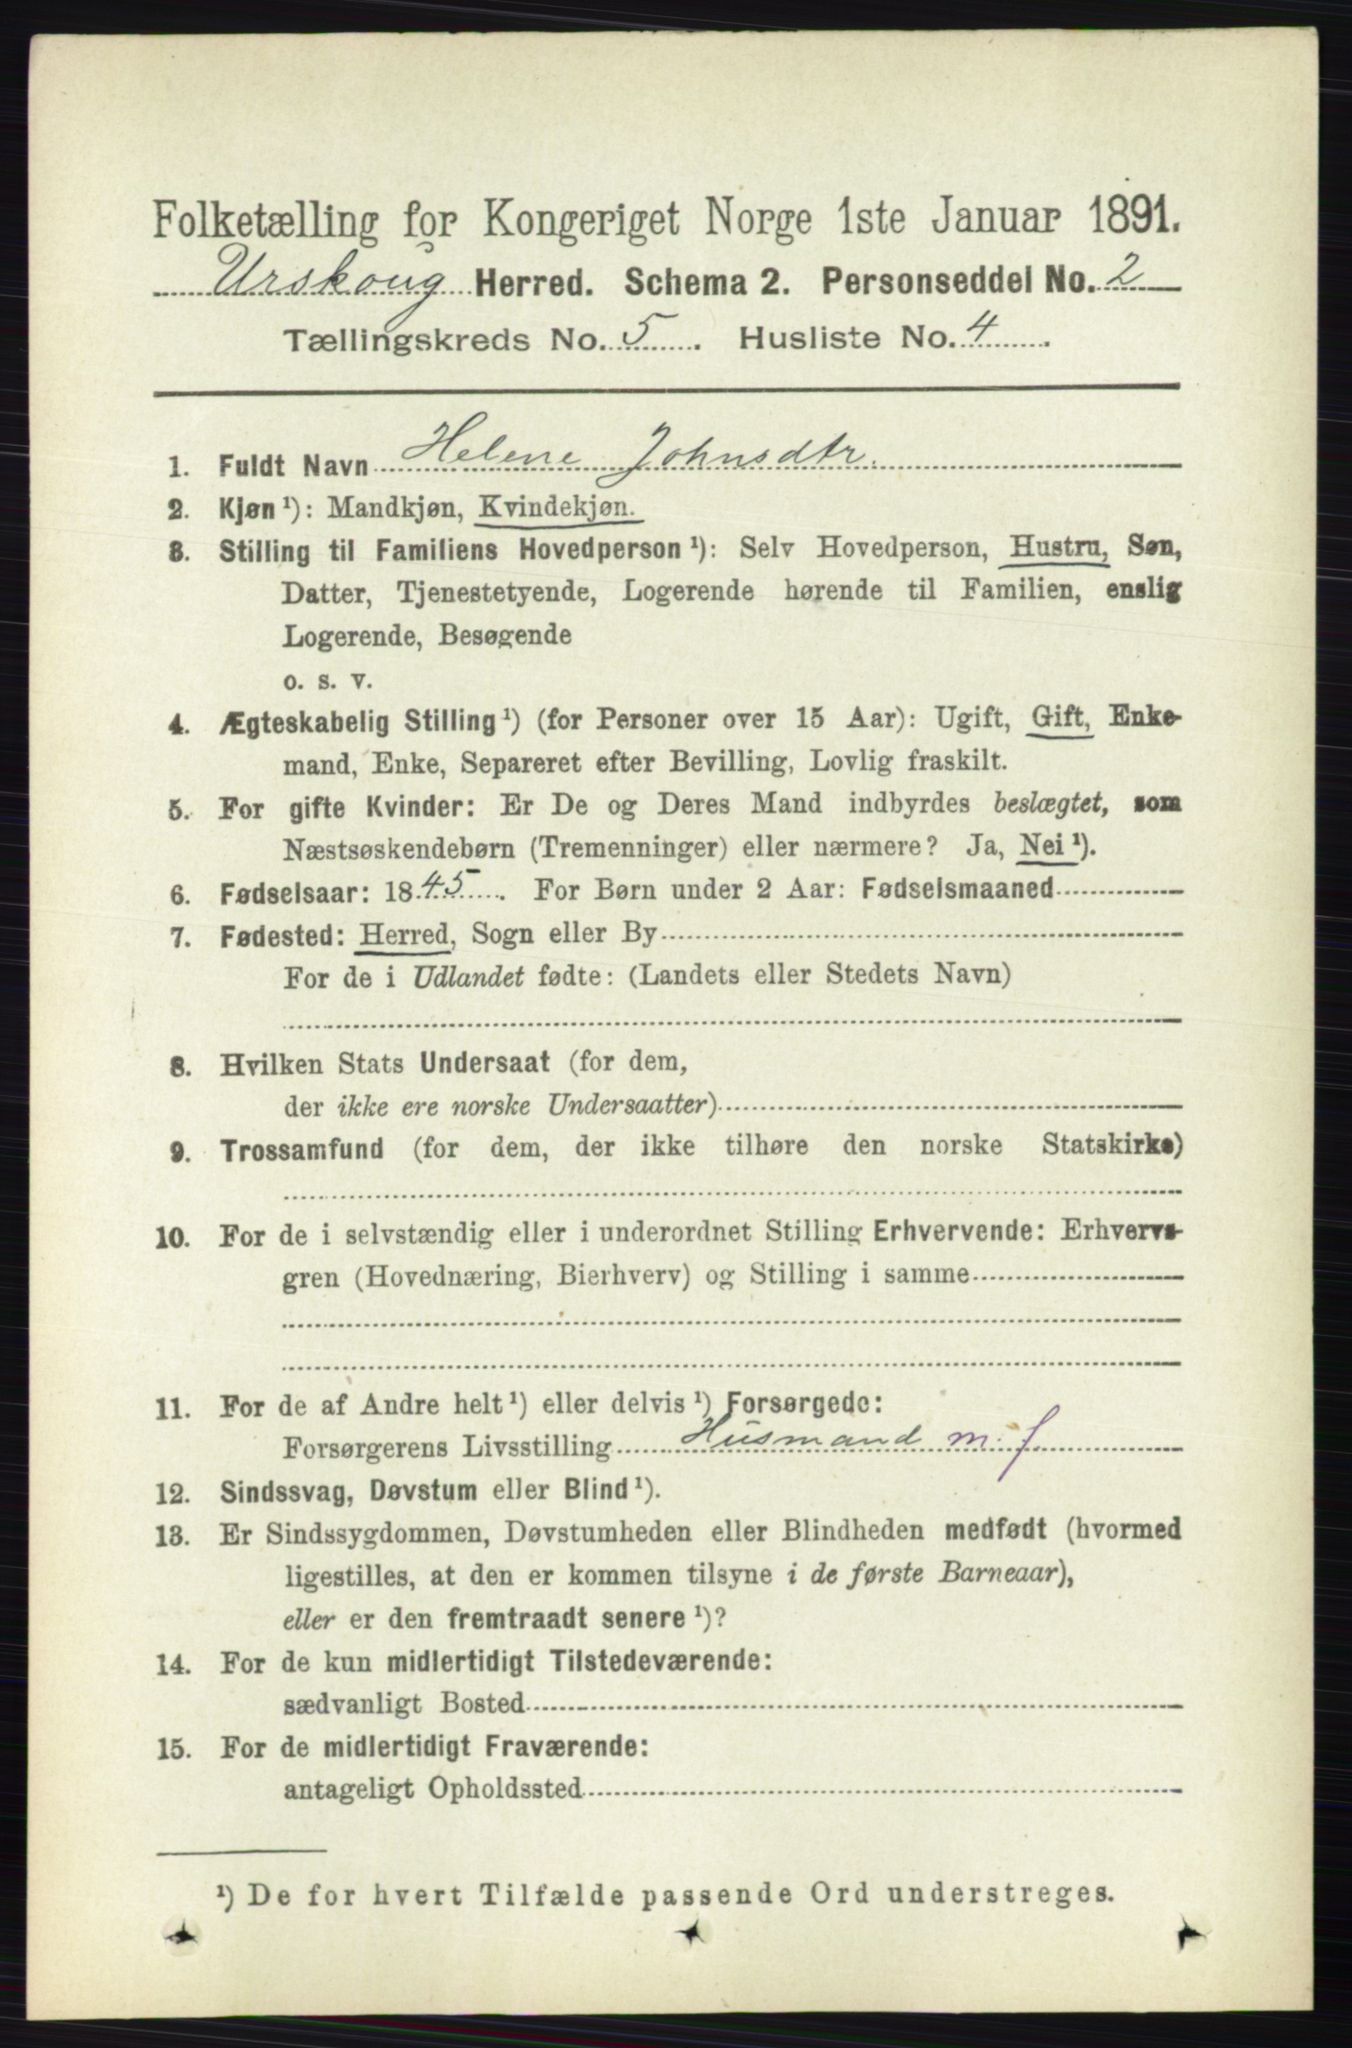 Folketælling for Kongeriget Norge 1ste Januar 1891.
Urskoug Herred. Schema 2. Personseddel No. 2
Tællingskreds No. 5. Husliste No. 4.
1. Fuldt Navn Helene Johnsdtr.
2. Kjøn ¹): Mandkjøn, Kvindekjøn.
3. Stilling til Familiens Hovedperson ¹): Selv Hovedperson, Hustru, Søn,
Datter, Tjenestetyende, Logerende hørende til Familien, enslig
Logerende, Besøgende
o. s. v.
4. Ægteskabelig Stilling ¹) (for Personer over 15 Aar): Ugift, Gift, Enke-
mand, Enke, Separeret efter Bevilling, Lovlig fraskilt.
5. For gifte Kvinder: Er De og Deres Mand indbyrdes beslægtet, som
Næstsøskendebørn (Tremenninger) eller nærmere? Ja, Nei ¹).
6. Fødselsaar: 1845. For Børn under 2 Aar: Fødselsmaaned
7. Fødested: Herred, Sogn eller By
For de i Udlandet fødte: (Landets eller Stedets Navn)
8. Hvilken Stats Undersaat (for dem,
der ikke ere norske Undersaatter)
9. Trossamfund (for dem, der ikke tilhøre den norske Statskirke)
10. For de i selvstændig eller i underordnet Stilling Erhvervende: Erhvervs-
gren (Hovednæring, Bierhverv) og Stilling i samme
11. For de af Andre helt ¹) eller delvis ¹) Forsørgede:
Forsørgerens Livsstilling Husmand m. f.
12. Sindssvag, Døvstum eller Blind ¹).
13. Er Sindssygdommen, Døvstumheden eller Blindheden medfødt (hvormed
ligestilles, at den er kommen tilsyne i de første Barneaar),
eller er den fremtraadt senere ¹)?
14. For de kun midlertidigt Tilstedeværende:
sædvanligt Bosted
15. For de midlertidigt Fraværende:
antageligt Opholdssted
¹) De for hvert Tilfælde passende Ord understreges.